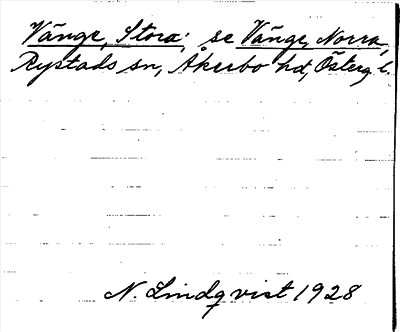 Vänge, Stora; se Vänge, Norra,
Rystads sn, Åkerbo hd, Österg. l.
N. Lindqvist 1928